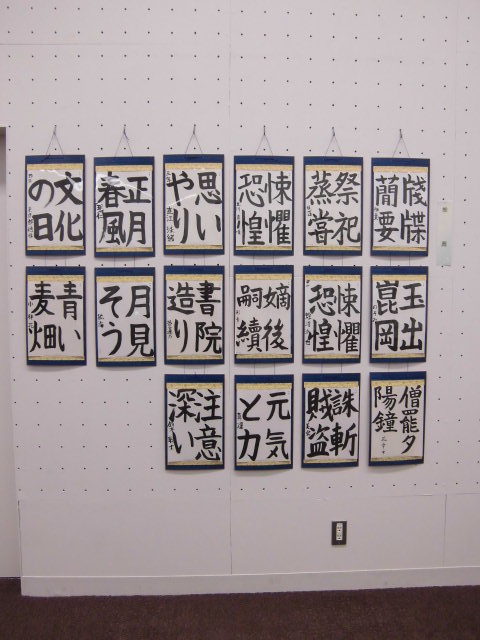 牋牒
簡要
祭祀
蒸嘗
悚懼
恐惶
思い
やり
正月
春風
文化
の日
玉出
崑岡
悚懼
恐惶
嫡後
嗣續
書院
造り
月見
そう
青い
麦畑
僧罷夕
陽鐘
誅斬
賊盗
元気
と力
注意
深い